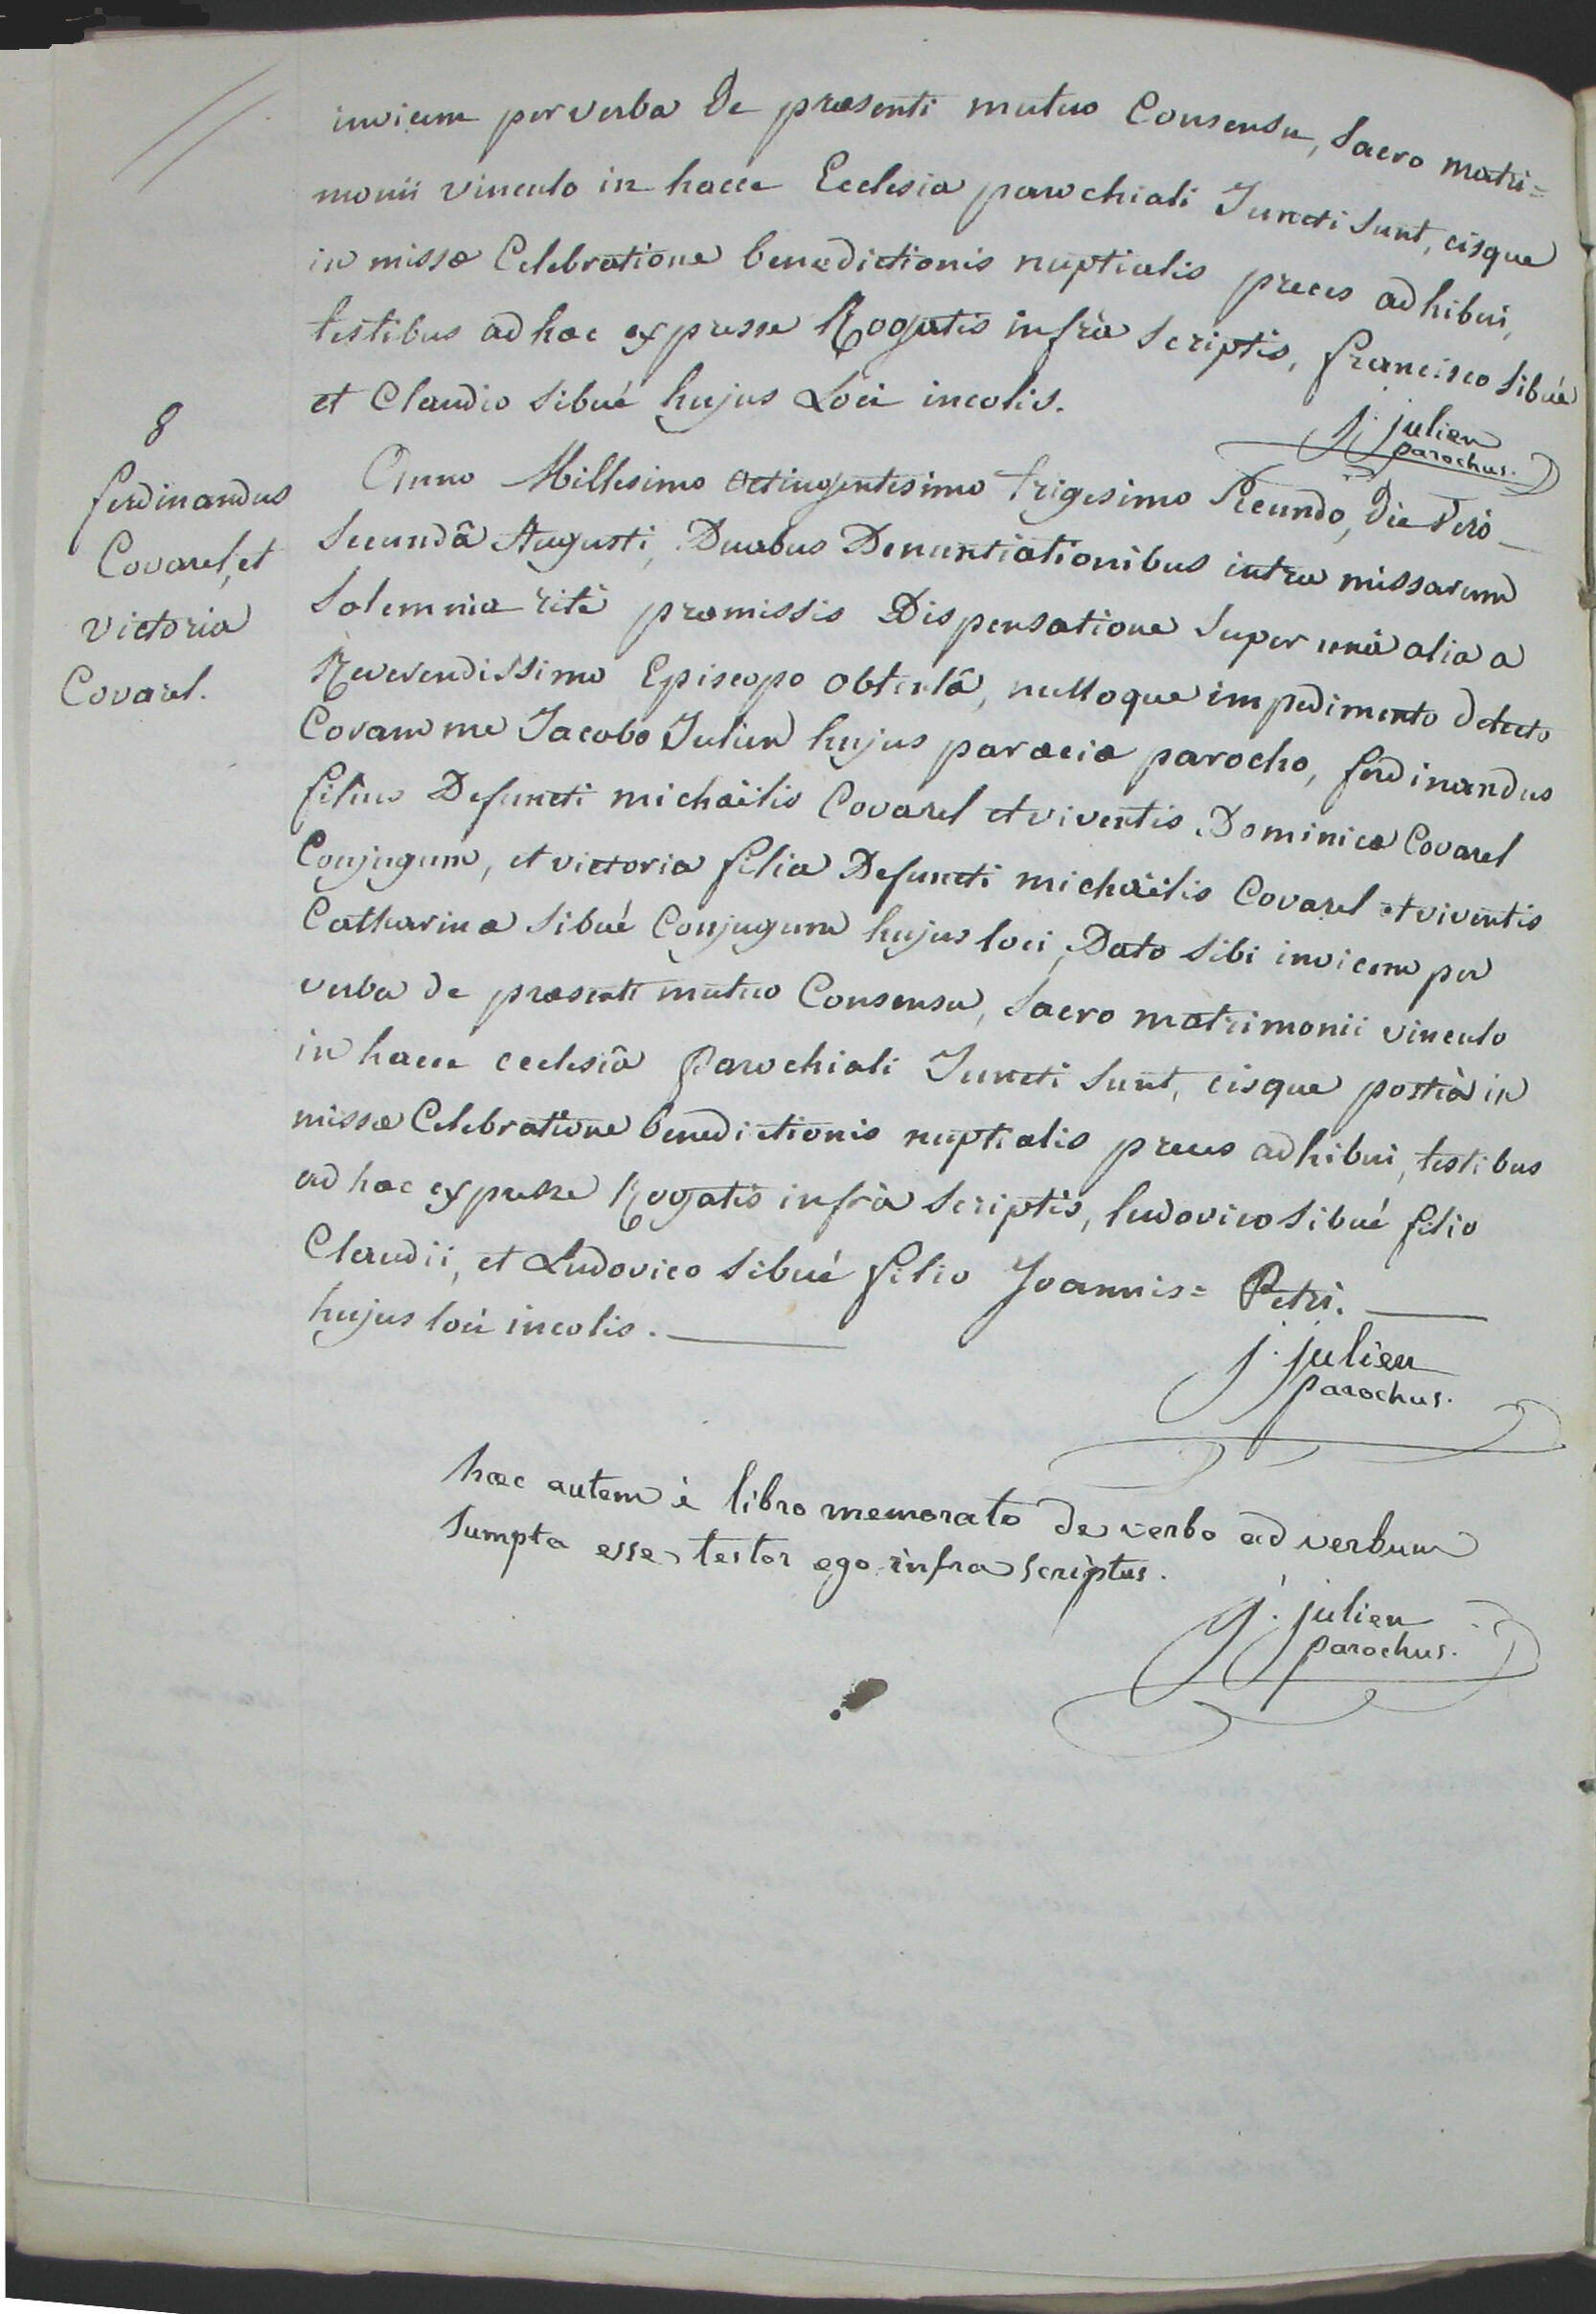 invicem per verba de præsenti mutuo Consensu, Sacro matri=
monii vinculo in hacce Ecclesia parochiali Juncti Sunt, eisque
in missæ Celebratione benedictionis nuptialis preces adhibui,
testibus ad hoc expresse Rogatis infrà Scriptis, francisco Sibué
et Claudio Sibué hujus Loci incolis.
j. julien
parochus.
8
ferdinandus
Covarel, et
victoria
Covarel.
Anno Millesimo octingentesimo trigesimo Secundo, die Verò
Secundâ Augusti, Duabus Denuntiationibus intra missarum
Solemnia ritè præmissis Dispensatione Super unâ alia a
Reverendissimo Episcopo obtentâ, nulloque impedimento detecto
Coram me Jacobo Julien hujus parœciæ parocho, ferdinandus
filius Defuncti michaëlis Covarel et viventis Dominicæ Covarel
Conjugum, et victoria filia Defuncti michaëlis Covarel et viventis
Catharinæ Sibué Conjugum hujus loci, Dato Sibi invicem per
verba de præsenti mutuo Consensu, Sacro matrimonii vinculo
in hacce ecclesiâ Parochiali Juncti Sunt, eisque posteà in
missæ Celebratione benedictionis nuptialis preces adhibui, testibus
ad hoc expresse Rogatis infrà Scriptis, ludovico Sibué filio
Claudii, et Ludovico Sibué filio Joannis= Petri.
hujus loci incolis.
j. julien
parochus.
hæc autem è libro memorato de verbo ad verbum
Sumpta esse testor ego infra Scriptus.
j. julien
parochus.